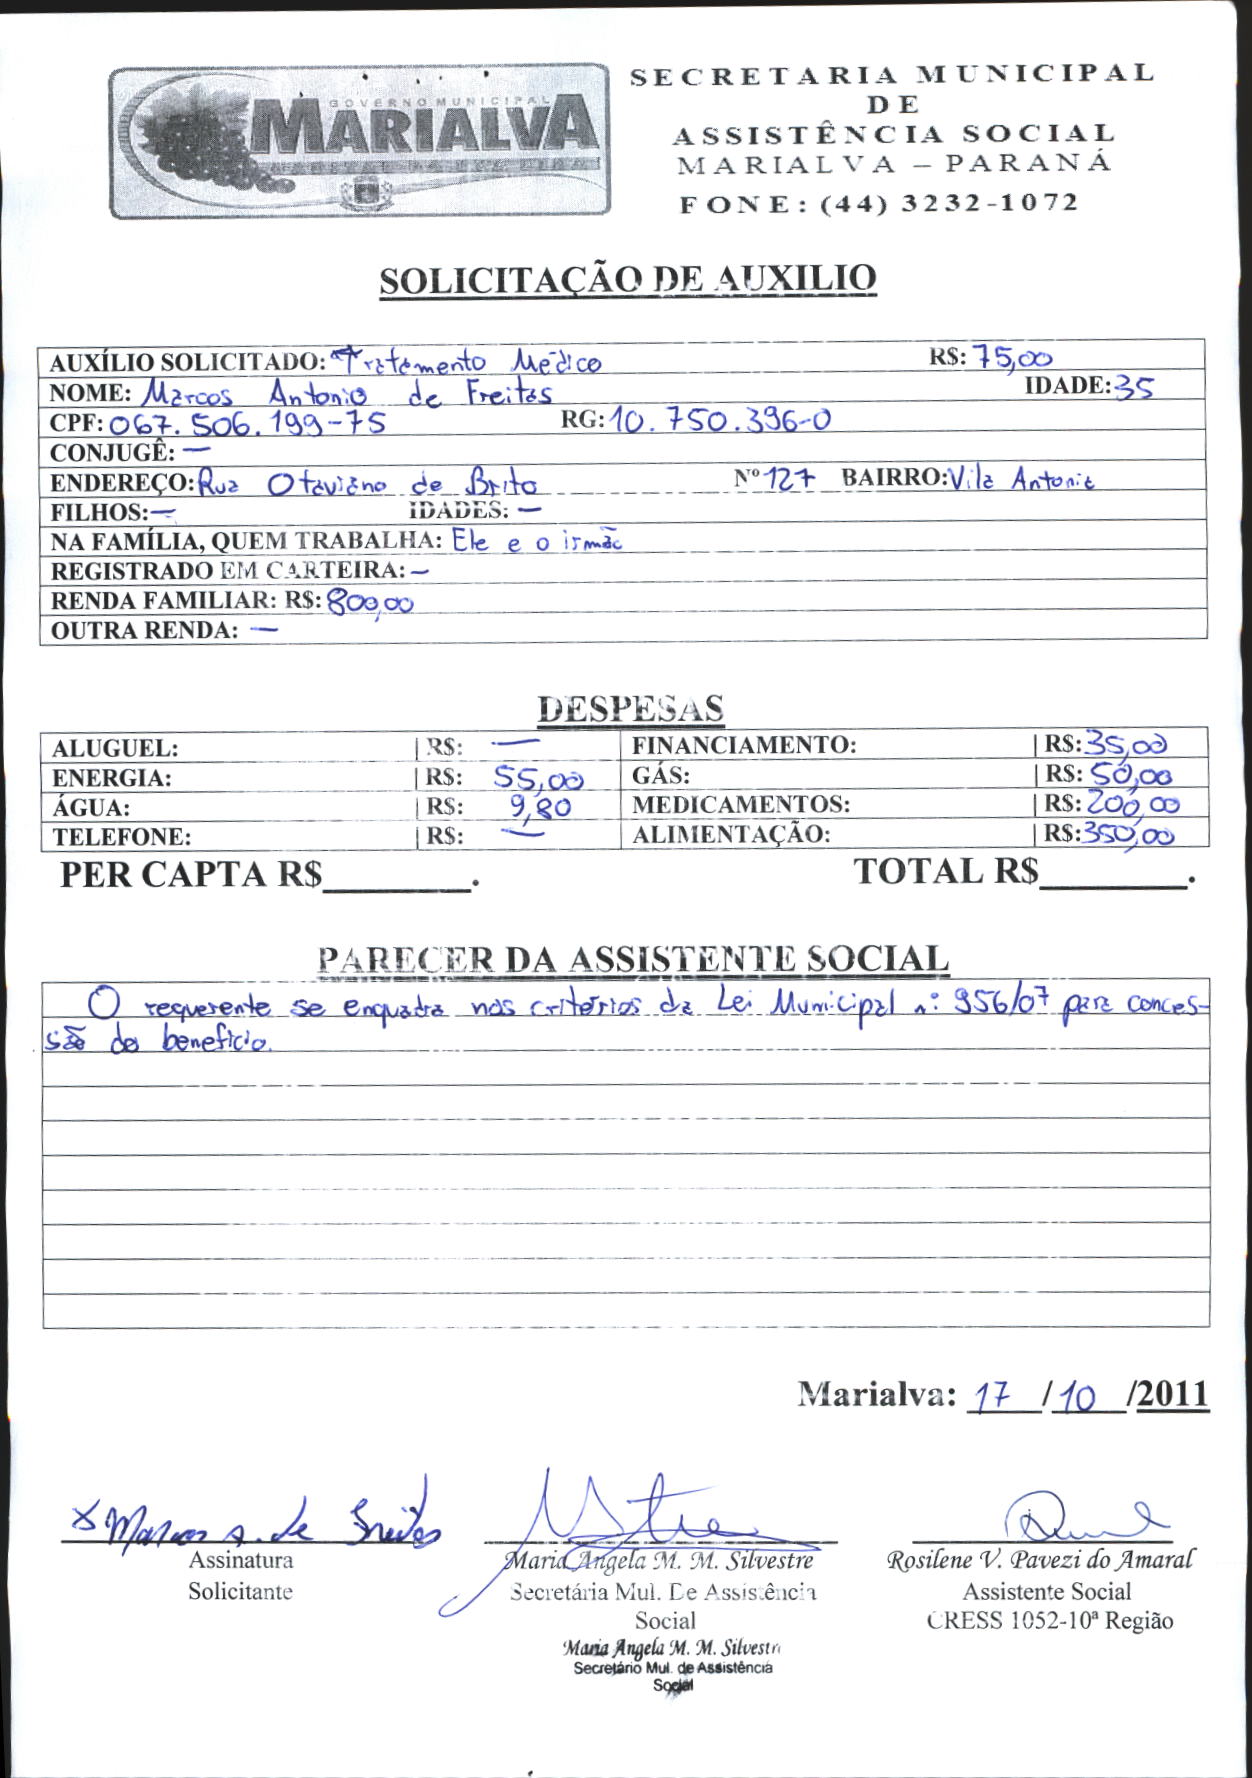 GOVERNO MUNICIPAL
MARIALVA
SECRETARIA MUNICIPAL
DE
ASSISTÊNCIA SOCIAL
MARIALVA – PARANÁ
FONE: (44) 3232-1072
SOLICITAÇÃO DE AUXILIO
AUXÍLIO SOLICITADO: Tratamento Médico R$: 75,00
NOME: Marcos Antonio de Freitas IDADE: 35
CPF: 067.506.199-75 RG: 10.750.396-0
CONJUGÊ: —
ENDEREÇO: Rua Otaviano de Brito Nº 127 BAIRRO: Vila Antonia
FILHOS: — IDADES: —
NA FAMÍLIA, QUEM TRABALHA: Ele e o irmão
REGISTRADO EM CARTEIRA: —
RENDA FAMILIAR: R$: 800,00
OUTRA RENDA: —
DESPESAS
ALUGUEL: | R$: — FINANCIAMENTO: | R$: 35,00
ENERGIA: | R$: 55,00 GÁS: | R$: 50,00
ÁGUA: | R$: 9,80 MEDICAMENTOS: | R$: 200,00
TELEFONE: | R$: — ALIMENTAÇÃO: | R$: 350,00
PER CAPTA R$________. TOTAL R$________.
PARECER DA ASSISTENTE SOCIAL
O requerente se enquadra nos critérios da Lei Municipal nº 956/07 para conces-
são do benefício.
Marialva: 17 / 10 /2011
x Marcos A. de Freitas
Assinatura Maria Angela M. M. Silvestre Rosilene V. Pavezi do Amaral
Solicitante Secretária Mul. De Assistência Assistente Social
Social CRESS 1052-10ª Região
Maria Angela M. M. Silvestre
Secretário Mul. de Assistência
Social